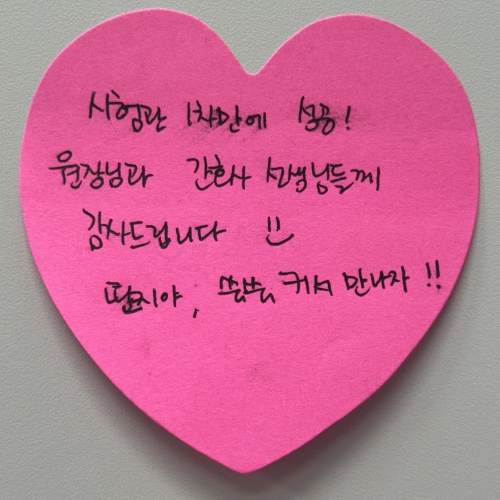 시험관 1차만에 성공!
원장님과 간호사 선생님들께
감사드립니다 !!
딸지야, 쑥쑥 커서 만나자!!